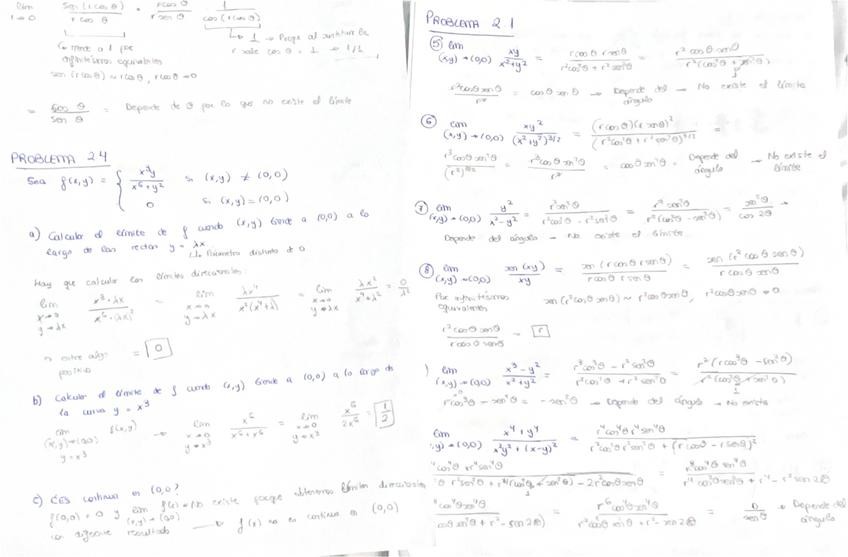 lim r→0 sen(r cos θ) / r cos θ · r cos θ / r sen θ · 1 / cos(r cos θ)
↳ tiende a 1 por infinitésimos equivalentes
sen(r cos θ) ~ r cos θ, r cos θ → 0
= cos θ / sen θ = Depende de θ por lo que no existe el límite
PROBLEMA 24
Sea f(x,y) = { x³y / x⁶+y² si (x,y) ≠ (0,0)
0 si (x,y) = (0,0)
a) Calcular el límite de f cuando (x,y) tiende a (0,0) a lo
largo de las rectas y = λx
↳ Parámetro distinto de 0
Hay que calcular los límites direccionales:
lim x→0 y→λx x³·λx / x⁶·(λx)² = lim x→0 y→λx λx⁴ / x²(x⁴+λ) = lim x→0 y→λx λx² / x⁴+λ² = 0/λ²
= 0
b) Calcular el límite de f cuando (x,y) tiende a (0,0) a lo largo de
la curva y = x³
lim (x,y)→(0,0) y=x³ f(x,y) → lim x→0 y→x³ x⁶ / x⁶+x⁶ = lim x→0 y→x³ x⁶ / 2x⁶ = 1/2
c) ¿Es continua en (0,0)?
f(0,0) = 0 y lim (x,y)→(0,0) f(x) = No existe porque obtenemos límites direccionales
con diferente resultado → f(x) no es continua en (0,0)
PROBLEMA 2.1
⑤ lim (x,y)→(0,0) xy / x²+y² = r cos θ r sen θ / r² cos² θ + r² sen² θ = r² cos θ sen θ / r²(cos² θ + sen² θ)
r² cos θ sen θ / r² = cos θ sen θ → Depende del ángulo → No existe el límite
⑥ lim (x,y)→(0,0) xy² / (x²+y²)^3/2 = (r cos θ)(r sen θ)² / (r² cos² θ + r² sen² θ)^3/2 =
r³ cos θ sen² θ / (r²)^3/2 = r³ cos θ sen² θ / r³ = cos θ sen² θ = Depende del ángulo → No existe el límite
⑦ lim (x,y)→(0,0) y² / x²-y² = r² sen² θ / r² cos² θ - r² sen² θ = r² sen² θ / r²(cos² θ - sen² θ) = sen² θ / cos 2θ →
Depende del ángulo → No existe el límite.
⑧ lim (x,y)→(0,0) sen(xy) / xy = sen(r cos θ r sen θ) / r cos θ r sen θ = sen(r² cos θ sen θ) / r cos θ sen θ
Por infinitésimos equivalentes sen(r² cos θ sen θ) ~ r² cos θ sen θ, r² cos θ sen θ → 0
r² cos θ sen θ / r cos θ sen θ = r
) lim (x,y)→(0,0) x³-y² / x²+y² = r³ cos³ θ - r² sen² θ / r² cos² θ + r² sen² θ = r²(r cos³ θ - sen² θ) / r²(cos² θ + sen² θ)
r cos³ θ - sen² θ = -sen² θ → Depende del ángulo → No existe
lim ,y)→(0,0) x⁴+y⁴ / x²y²+(x-y)² = r⁴ cos⁴ θ r⁴ sen⁴ θ / r² cos² θ r² sen² θ + (r cos θ - r sen θ)²
= r⁴ cos⁴ θ sen⁴ θ / r⁴ cos² θ sen² θ + r⁴ - r² sen 2θ
= r⁶ cos⁴ θ sen⁴ θ / r² cos² θ sen² θ + r² - sen 2θ = 0 / sen θ → Depende del ángulo